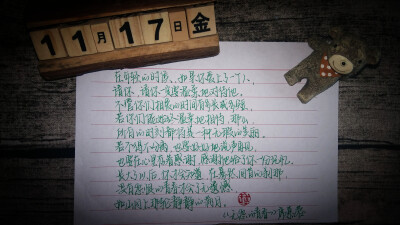 11月17日金
在年轻的时候,如果你爱上了一个人,
请你,请你一定要温柔地对待他。
不管你们相爱的时间有多长或多短,
若你们能始终温柔地相待,那么
所有的时刻都将是一种无瑕的美丽。
若不得不分离,也要好好地说声再见,
也要在心里存着感谢,感谢他给了你一份记忆。
长大了以后,你才会知道,在蓦然回首的刹那,
没有怨恨的青春才会了无遗憾,
如山冈上那轮静静的满月。
《无怨的青春》席慕蓉